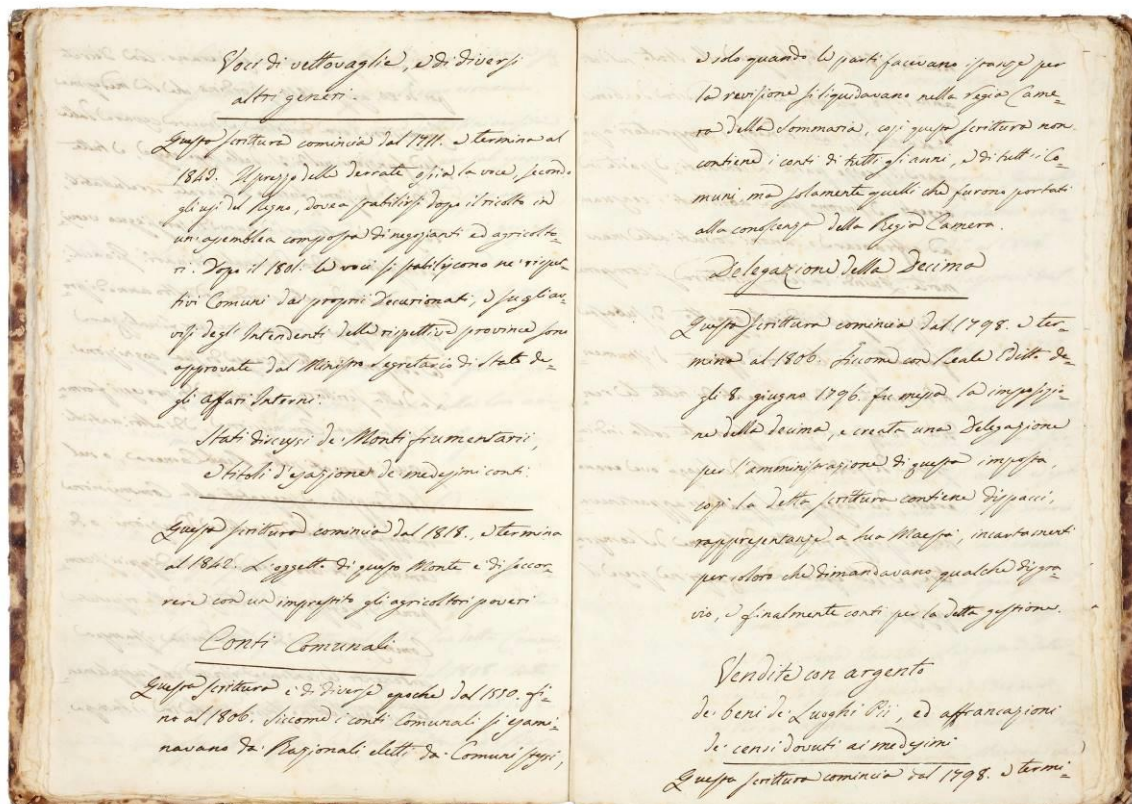 Voci di vettovaglie, e di diversi
altri generi.
Questa scrittura comincia dal 1711. e termina al
1849. Il prezzo delle derrate ossia la voce, secondo
gli usi del Regno, dovea stabilirsi dopo il ricolto in
un'assemblea composta di negozianti ed agricolto=
ri. Dopo il 1801. le voci si stabiliscono ne' rispet=
tivi Comuni dai proprii Decurionati, e sugli av=
visi degl'Intendenti delle rispettive province sono
approvate dal Ministro Segretario di Stato de=
gli affari Interni.
Stati discussi de' Monti frumentarii,
e titoli d'esazione de' medesimi conti.
Questa scrittura comincia dal 1818., e termina
al 1842. L'oggetto di questo Monte è di soccor=
rere con un imprestito gli agricoltori poveri
Conti Comunali
Questa scrittura è di diverse epoche dal 1550. fi=
no al 1806. Siccome i conti Comunali si esami=
navano da' Razionali eletti da' Comuni stessi,
e solo quando le parti facevano istanze per
la revisione si liquidavano nella Regia Came=
ra della Sommaria, così questa scrittura non
contiene i conti di tutti gli anni, e di tutt'i Co=
muni, ma solamente quelli che furono portati
alla conoscenza della Regia Camera.
Delegazione della Decima
Questa scrittura comincia dal 1798. e ter=
mina al 1806. Siccome con Reale Editto de=
gli 8. giugno 1796. fu messa la imposizio=
ne della decima, e creata una Delegazione
per l'amministrazione di questa imposta,
così la detta scrittura contiene dispacci,
rappresentanze a Sua Maestà, incartamenti
per coloro che dimandavano qualche disgra=
vio, e finalmente conti per la detta gestione.
Vendite con argento
de' beni de' Luoghi Pii, ed affrancazioni
de' censi dovuti ai medesimi
Questa scrittura comincia dal 1798. e termi=